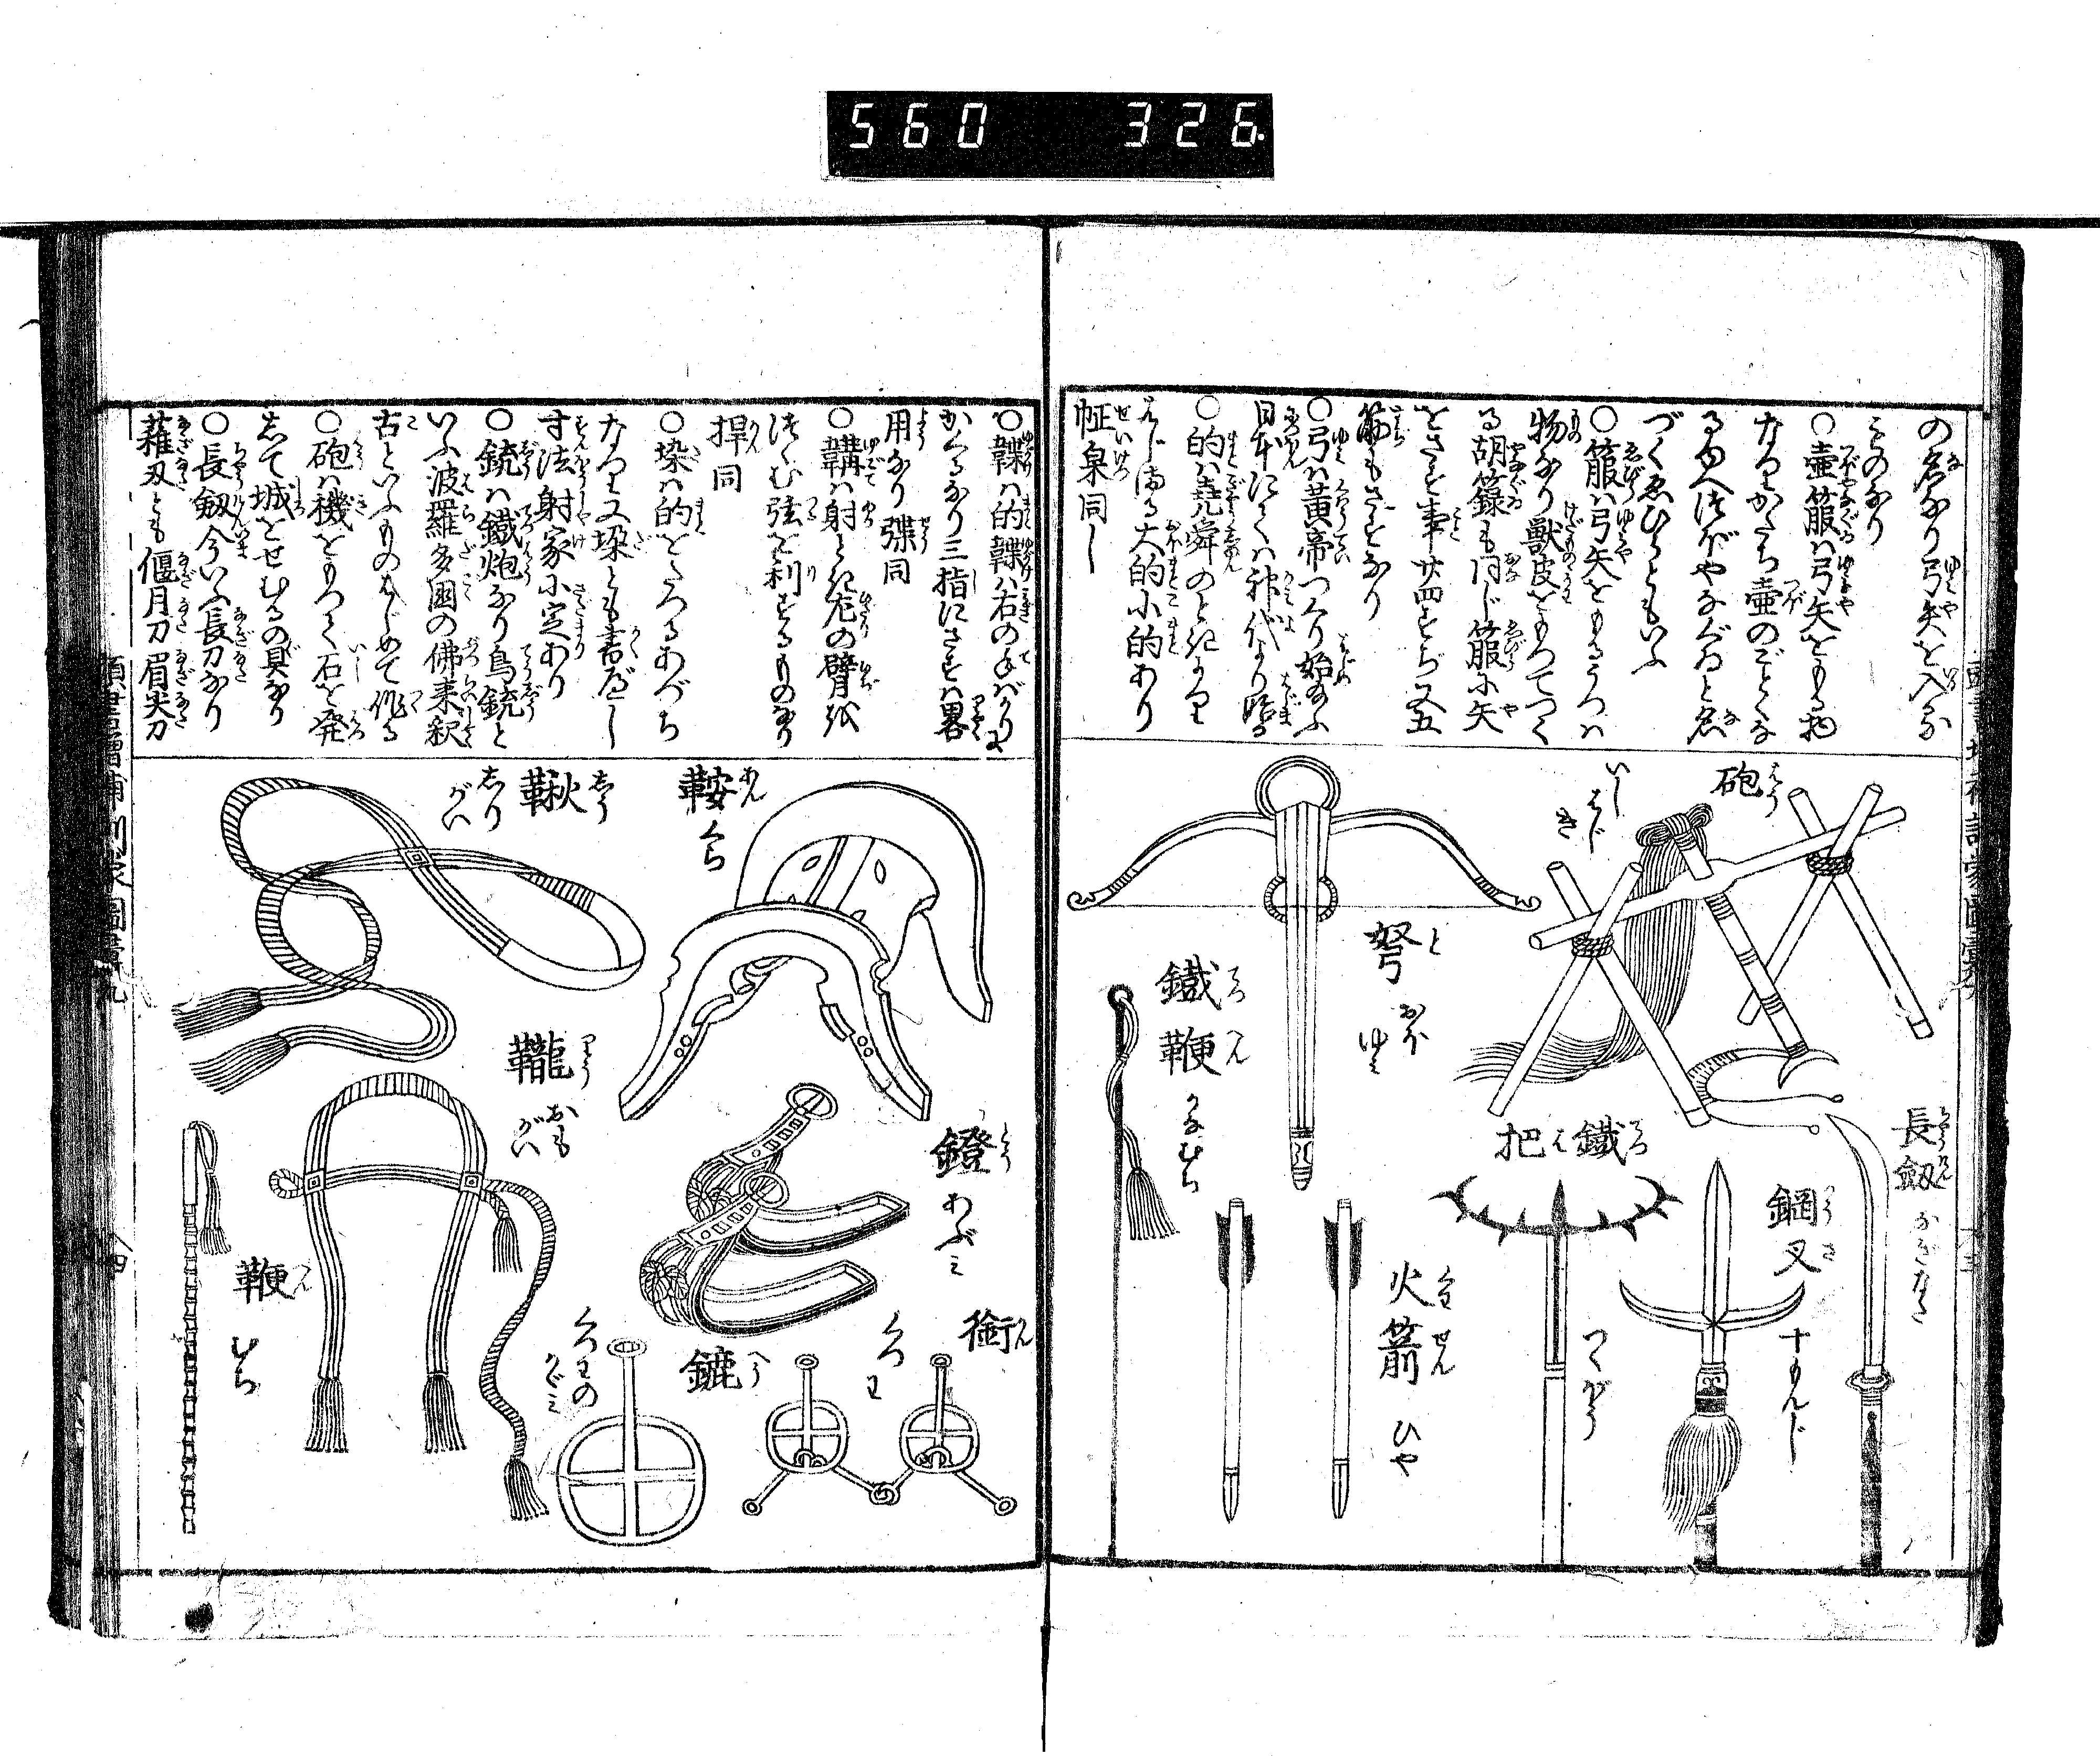 560 326
の名なり弓矢を入る
ものなり
〇壷箙ハ弓矢をもる物
なりかたち壷のごとくな
るゆへつぼやなぐゐと名
づくゑびらともいふ
〇箙ハ弓矢をもるうつハ
物なり獣皮をもつてつく
る胡簶も同じ箙に矢
をさす事廿四すぢ又五
筋もさすなり
〇弓ハ黄帝つくり始給ふ
日本にてハ神代より始る
〇的ハ堯舜のときより
はじまる大的小的あり
帪臬同し
砲 はう
いしはじき
弩 ど
おほゆミ
鐵鞭 てつへん
かなむち
長劔 ちやうけん
なぎなた
鐵把 てつは
つくぼう
鋼叉 かうさ
十もんじ
火箭 くわせん
ひや
〇韘ハ的韘ハ右の手ばかりに
かくるなり三指にさすハ畧
用なり弽同
〇韝ハ射るとき左の臂を
つゝむ弦を利するものなり
捍同
〇垜ハ的をたつるあづち
なり又垛とも書べし
寸法射家に定あり
〇銃ハ鐵炮なり鳥銃と
いふ波羅多國の佛来釈
古といふものはじめて作る
〇砲ハ機をもつて石を発
して城をせむるの具なり
〇長劔今いふ長刀なり
薙刃とも偃月刀眉尖刀
鞍 あん
くら
鞦 しう
しりがい
鞚 りう
おもがい
鐙 とう
あぶミ
鞭 へん
むち
銜 かん
くつわ
鑣 へう
くつわのかゞミ
頭書増補訓蒙圖彙九
八四